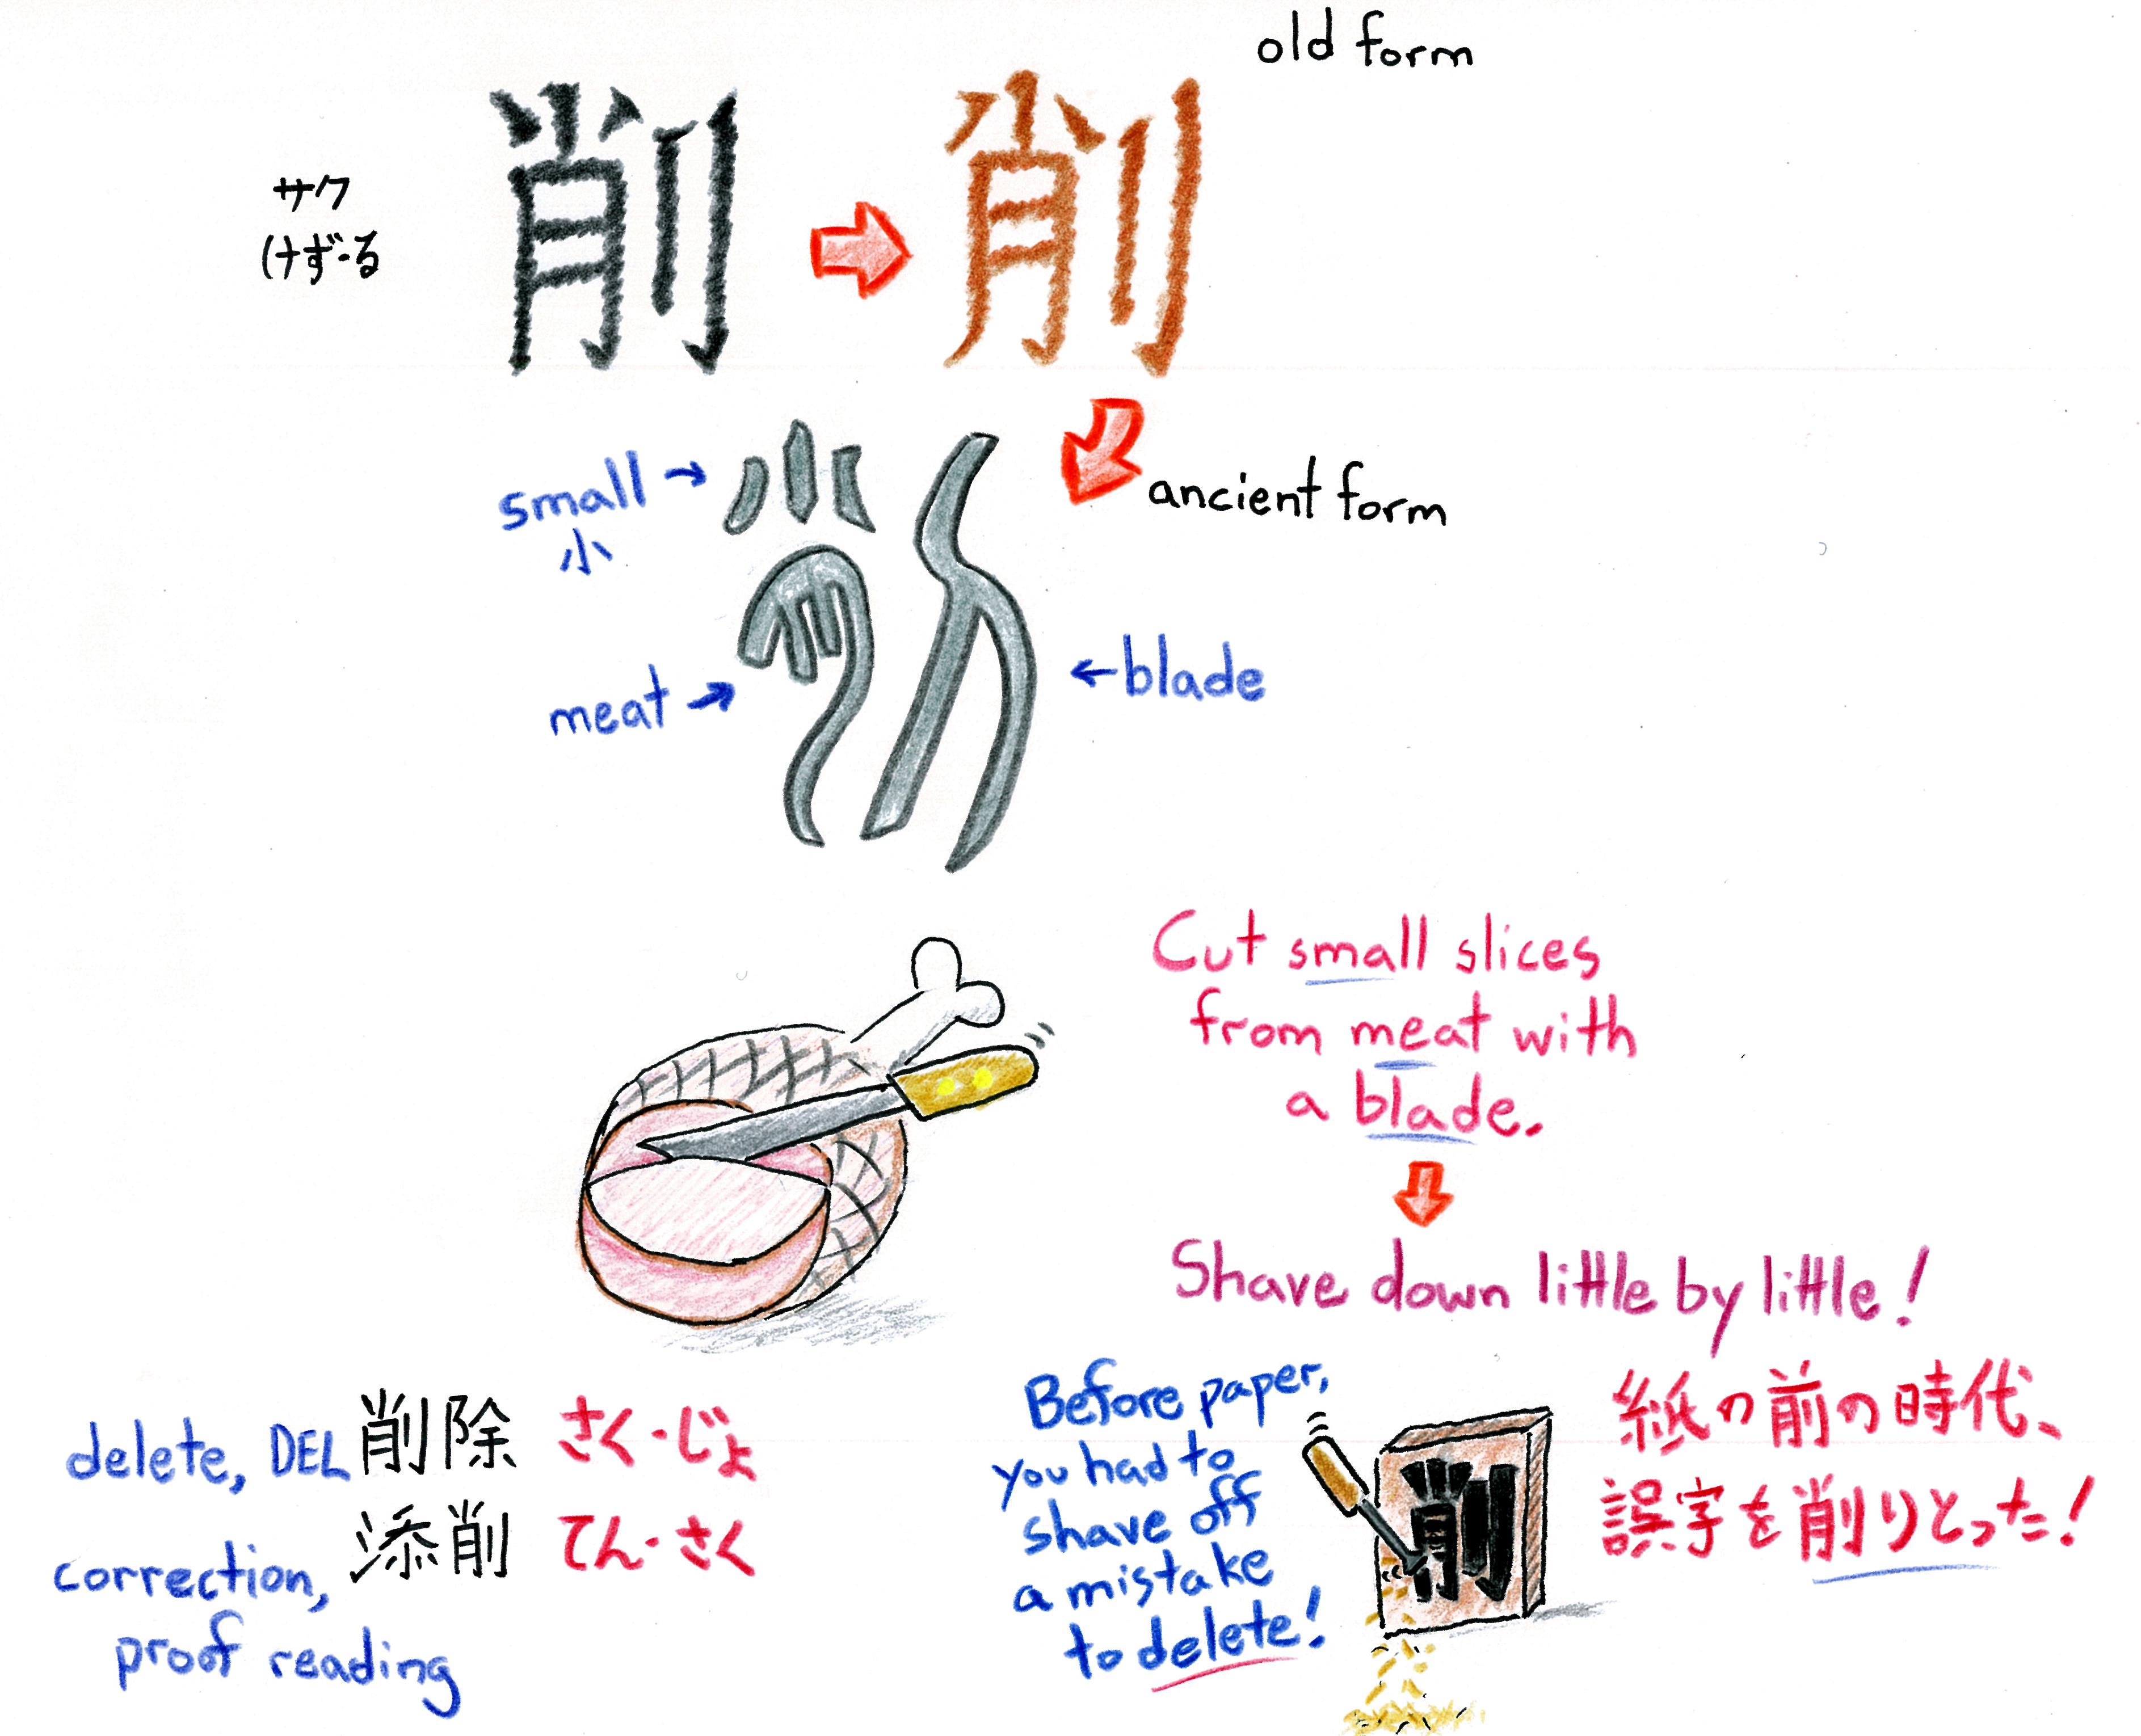 old form
削
削
サク
けず・る
small →
小
ancient form
meat →
← blade
Cut small slices
from meat with
a blade.
Shave down little by little!
delete, DEL 削除 さく・じょ
correction, 添削 てん・さく
proof reading
Before paper,
you had to
shave off
a mistake
to delete!
削
紙の前の時代、
誤字を削りとった!